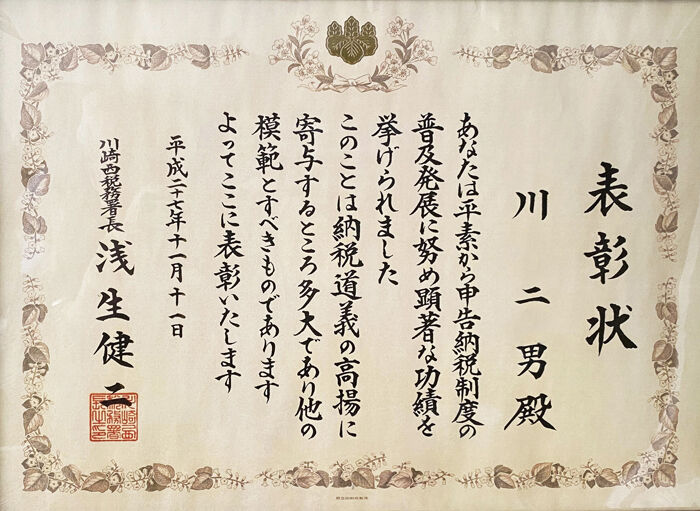 表彰状
川二男殿
あなたは平素から申告納税制度の
普及発展に努め顕著な功績を
挙げられました
このことは納税道義の高揚に
寄与するところ多大であり他の
模範とすべきものであります
よってここに表彰いたします
平成二十七年十一月十一日
川崎西税務署長
浅生健二